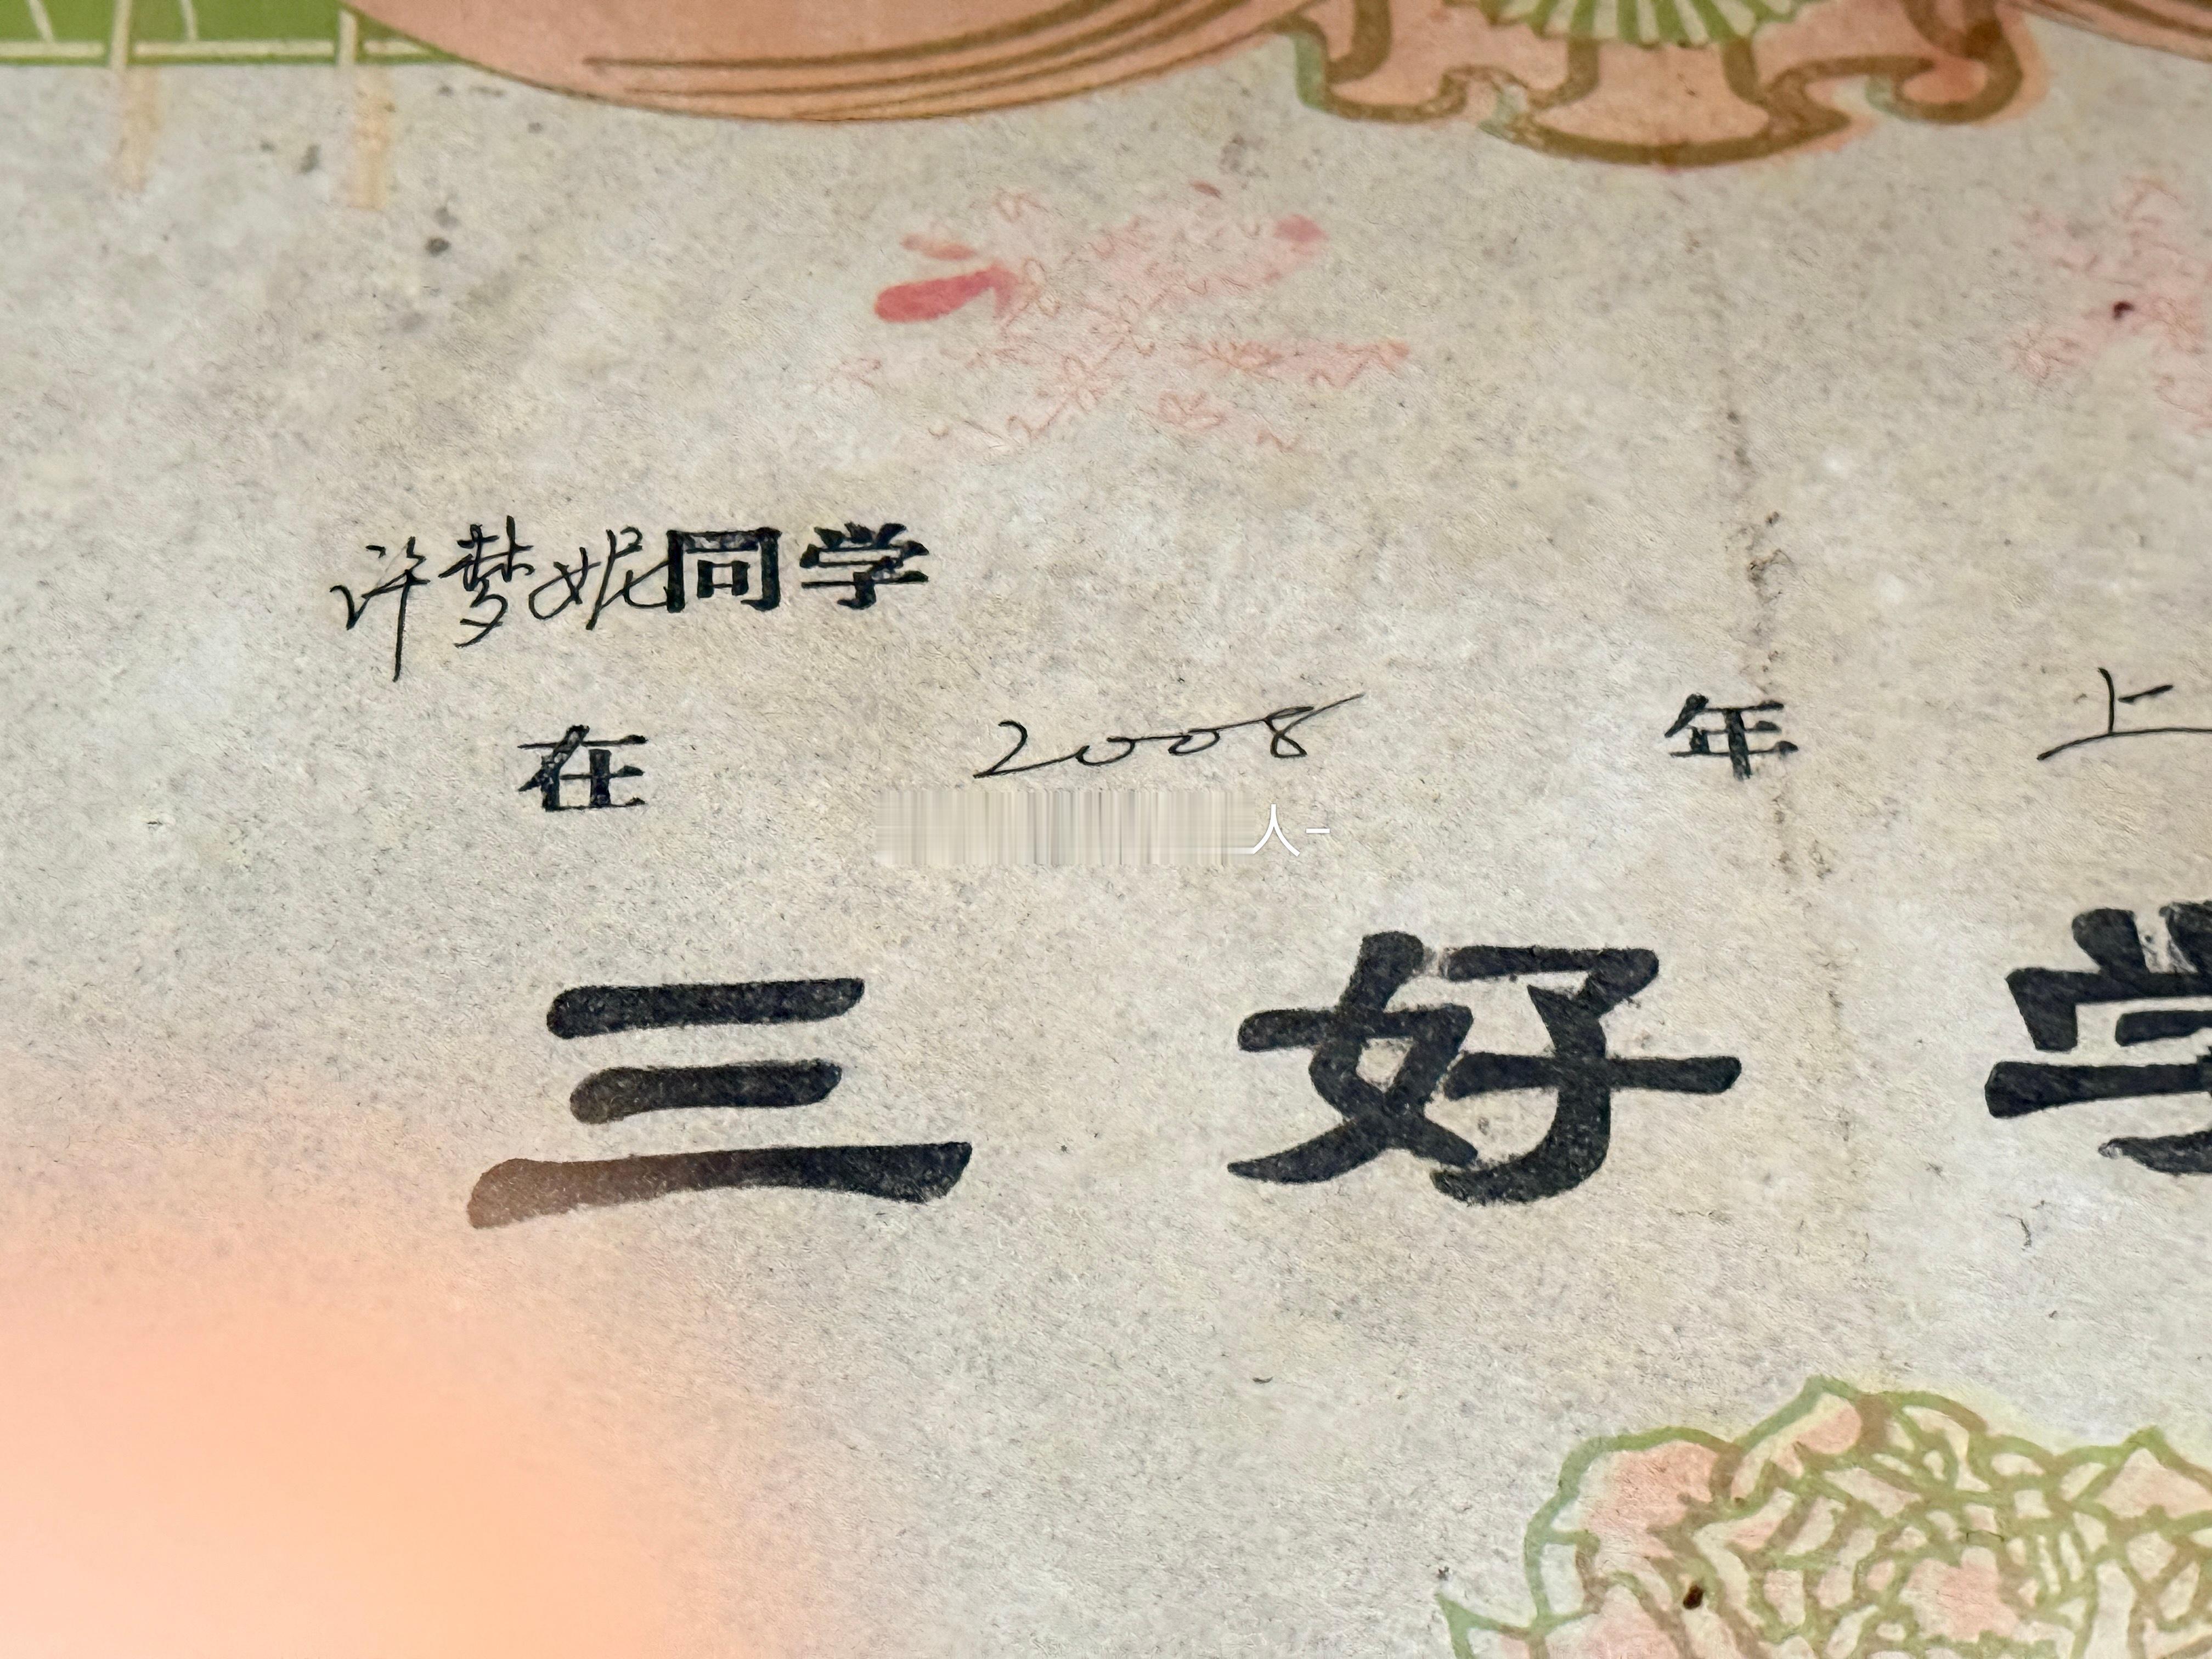 许梦妮同学
在 2008 年 上
人-
三好学